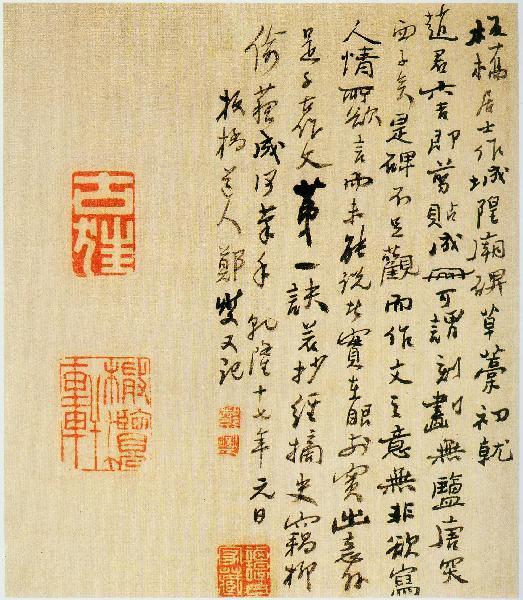 板橋居士作城隍廟碑草藁初就
趙君六吉即剪貼成冊可謂刻畫無鹽唐突
西子矣是碑不足觀而作文之意無非欲寫
人情所欲言而未能說者實在眼前實出意外
是千古作文第一訣若抄經摘史竊柳
偷蘇成何筆手乾隆十七年元日
板橋道人鄭燮又記